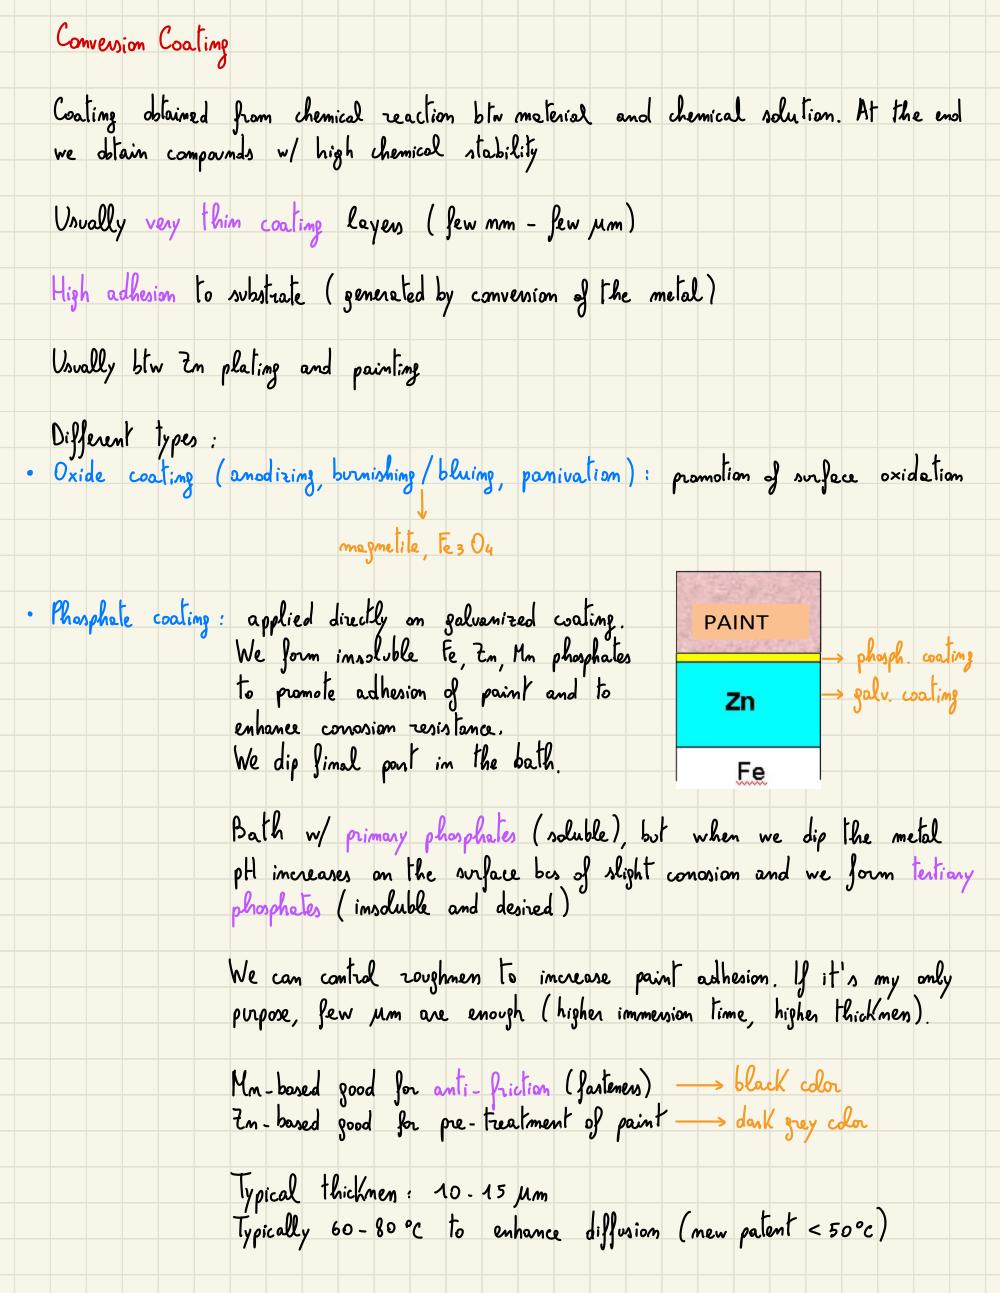 Conversion Coating
Coating obtained from chemical reaction btw material and chemical solution. At the end
we obtain compounds w/ high chemical stability
Usually very thin coating layers (few nm - few μm)
High adhesion to substrate (generated by conversion of the metal)
Usually btw Zn plating and painting
Different types:
• Oxide coating (anodizing, burnishing/bluing, passivation): promotion of surface oxidation
magnetite, Fe3O4
• Phosphate coating: applied directly on galvanized coating.
We form insoluble Fe, Zn, Mn phosphates
to promote adhesion of paint and to
enhance corrosion resistance.
We dip final part in the bath.
PAINT
phosph. coating
Zn
galv. coating
Fe
Bath w/ primary phosphates (soluble), but when we dip the metal
pH increases on the surface bcs of slight corrosion and we form tertiary
phosphates (insoluble and desired)
We can control roughness to increase paint adhesion. If it's my only
purpose, few μm are enough (higher immersion time, higher thickness).
Mn-based good for anti-friction (fasteners) → black color
Zn-based good for pre-treatment of paint → dark grey color
Typical thickness: 10-15 μm
Typically 60-80°C to enhance diffusion (new patent <50°C)